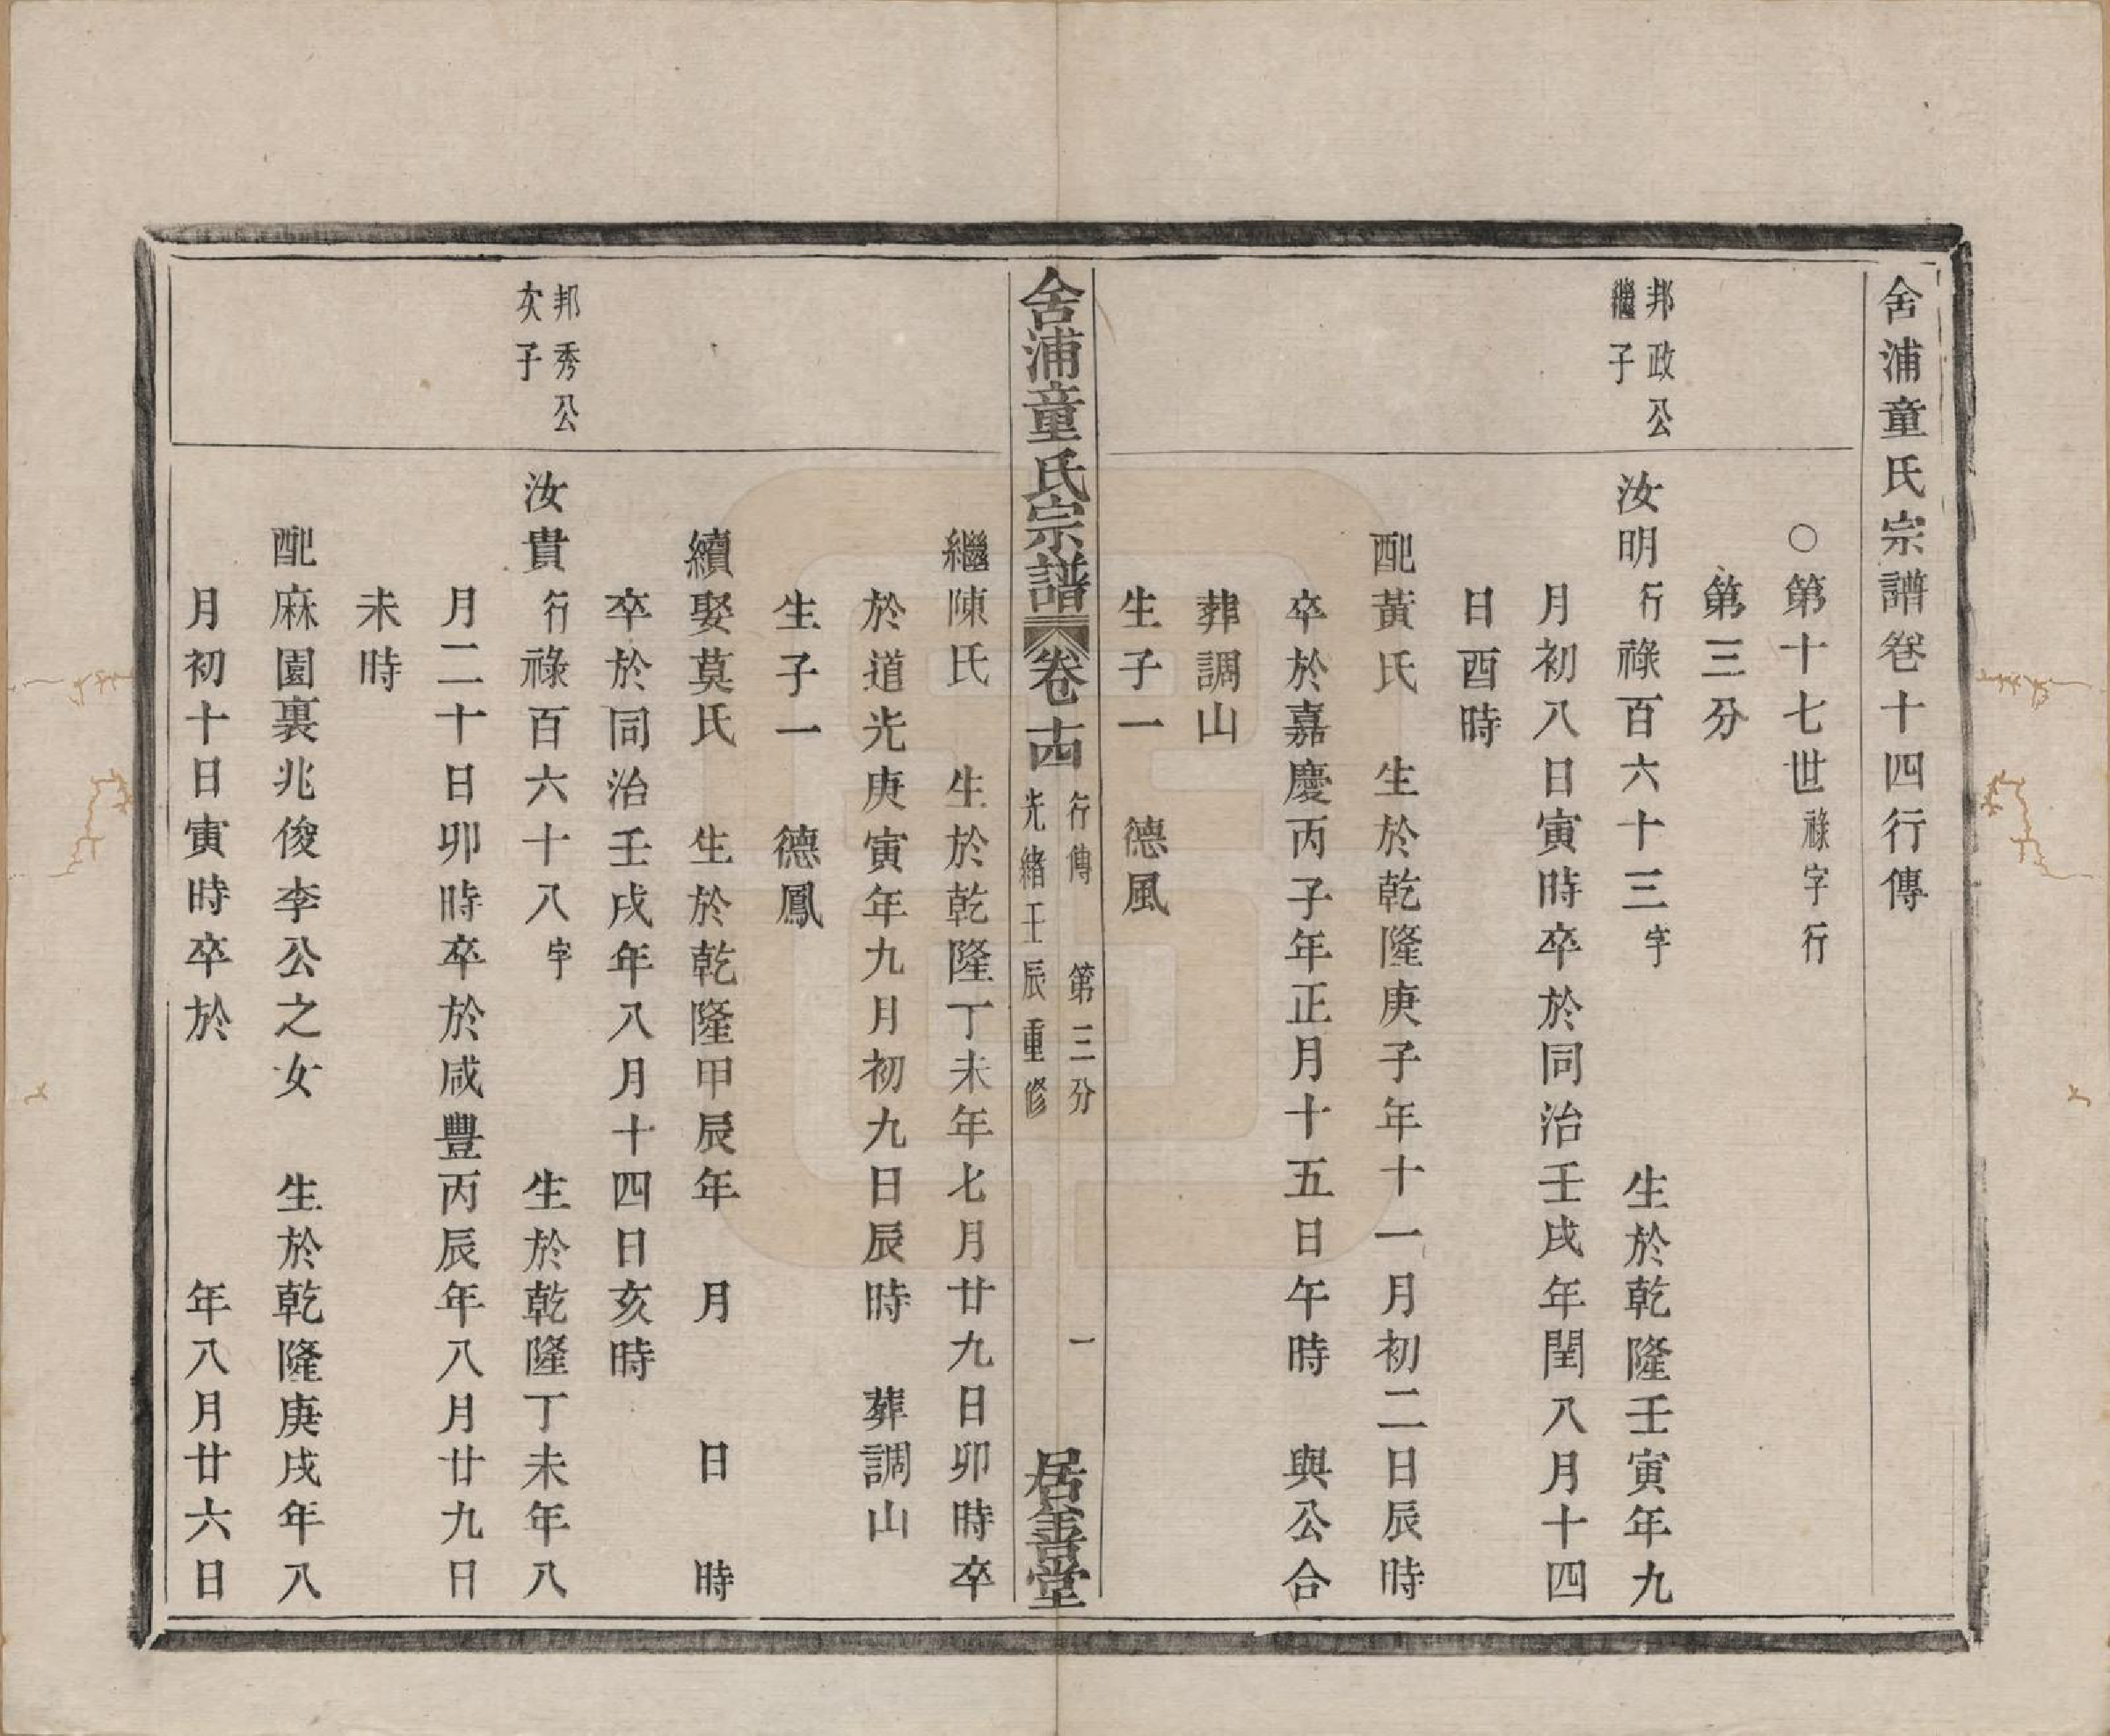 舍浦童氏宗譜卷十四行傳
○第十七世祿字行
第三分
邦政公
繼子
汝明行祿百六十三字　生於乾隆壬寅年九
月初八日寅時卒於同治壬戌年閏八月十四
日酉時
配黃氏　生於乾隆庚子年十一月初二日辰時
卒於嘉慶丙子年正月十五日午時　與公合
葬調山
生子一　德風
舍浦童氏宗譜　卷十四　行傳　第三分　一
光緒壬辰重修
居善堂
繼陳氏　生於乾隆丁未年七月廿九日卯時卒
於道光庚寅年九月初九日辰時　葬調山
生子一　德鳳
續娶莫氏　生於乾隆甲辰年　月　日　時
卒於同治壬戌年八月十四日亥時
邦秀公
次子
汝貴行祿百六十八字　生於乾隆丁未年八
月二十日卯時卒於咸豐丙辰年八月廿九日
未時
配麻園裏兆俊李公之女　生於乾隆庚戌年八
月初十日寅時卒於　年八月廿六日